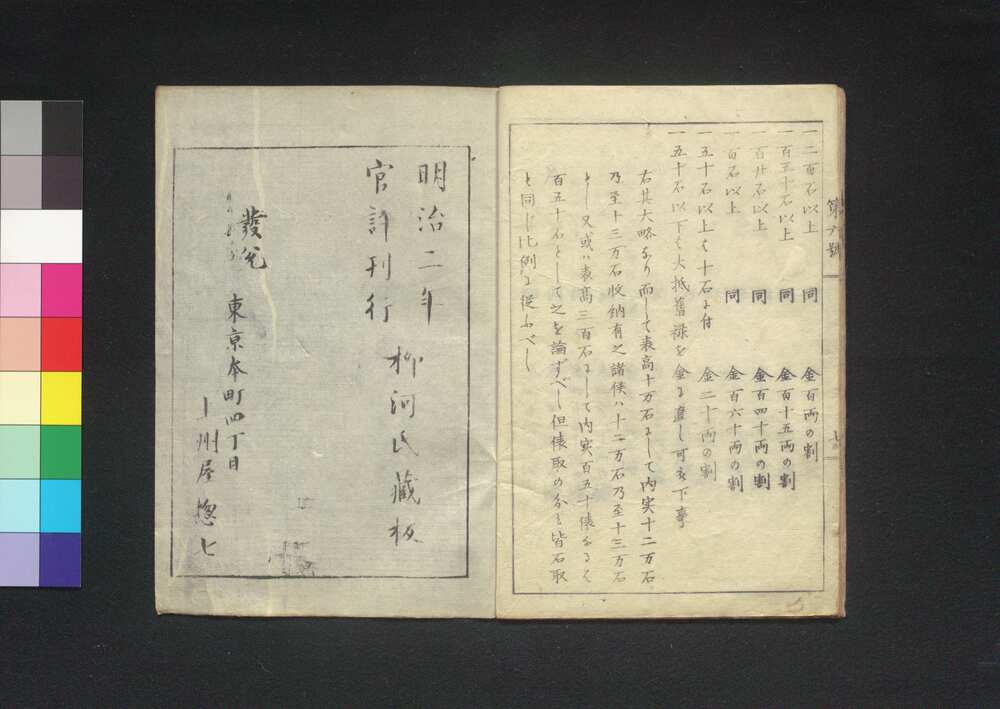 第六號
一二百石以上 同 金百両の割
一百五十石以上 同 金百十五両の割
一百廿石以上 同 金百四十両の割
一百石以上 同 金百六十両の割
一五十石以上も十石に付 金二十両の割
一五十石以下も大抵舊禄を金に直し可被下事
右其大略なり而して表高十万石にして内実十二万石
乃至十三万石收納有之諸侯ハ十二万石乃至十三万石
とし又或ハ表高三百石にして内実百五十俵なるハ
百五十石として之を論ずべし但俵取の分も皆石取
と同じ比例に従ふべし
明治二年
官許刊行
柳河氏藏板
發兌
東京本町四丁目
上州屋惣七